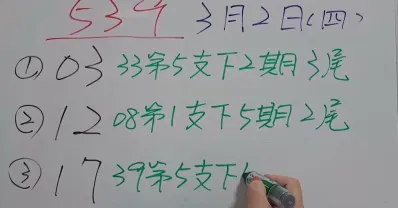 539 3月2日(四)
① 03 33第5支下2期月3尾
② 12 08第1支下5期月2尾
③ 17 39第5支下